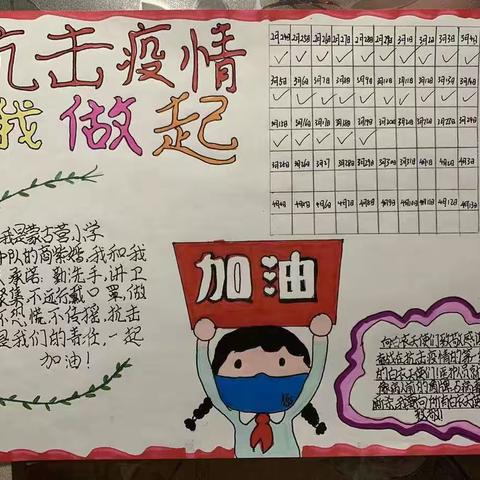 抗击疫情
我做起
2月24日 2月25日 2月26日 2月27日 2月28日 2月29日 3月1日 3月2日 3月3日 3月4日
3月5日 3月6日 3月7日 3月8日 3月9日 3月10日 3月11日 3月12日 3月13日 3月14日
3月15日 3月16日 3月17日 3月18日 3月19日 3月20日 3月21日 3月22日 3月23日 3月24日
3月25日 3月26日 3月27 3月28日 3月29日 3月30日 3月31日 4月1日 4月2日 4月3日
4月4日 4月5日 4月6日 4月7日 4月8日 4月9日 4月10日 4月11日 4月12日 4月13日
我是蒙古营小学
中队的商 我和我
承诺:勤洗手,讲卫
集,不远行戴口罩,做
不恐慌,不传摇,抗击
是我们的责任,一起
加油!
加油
向白衣天使们致敬感谢
在抗击疫情的第一
的白衣天使们
我要向所有白衣天使
致敬!